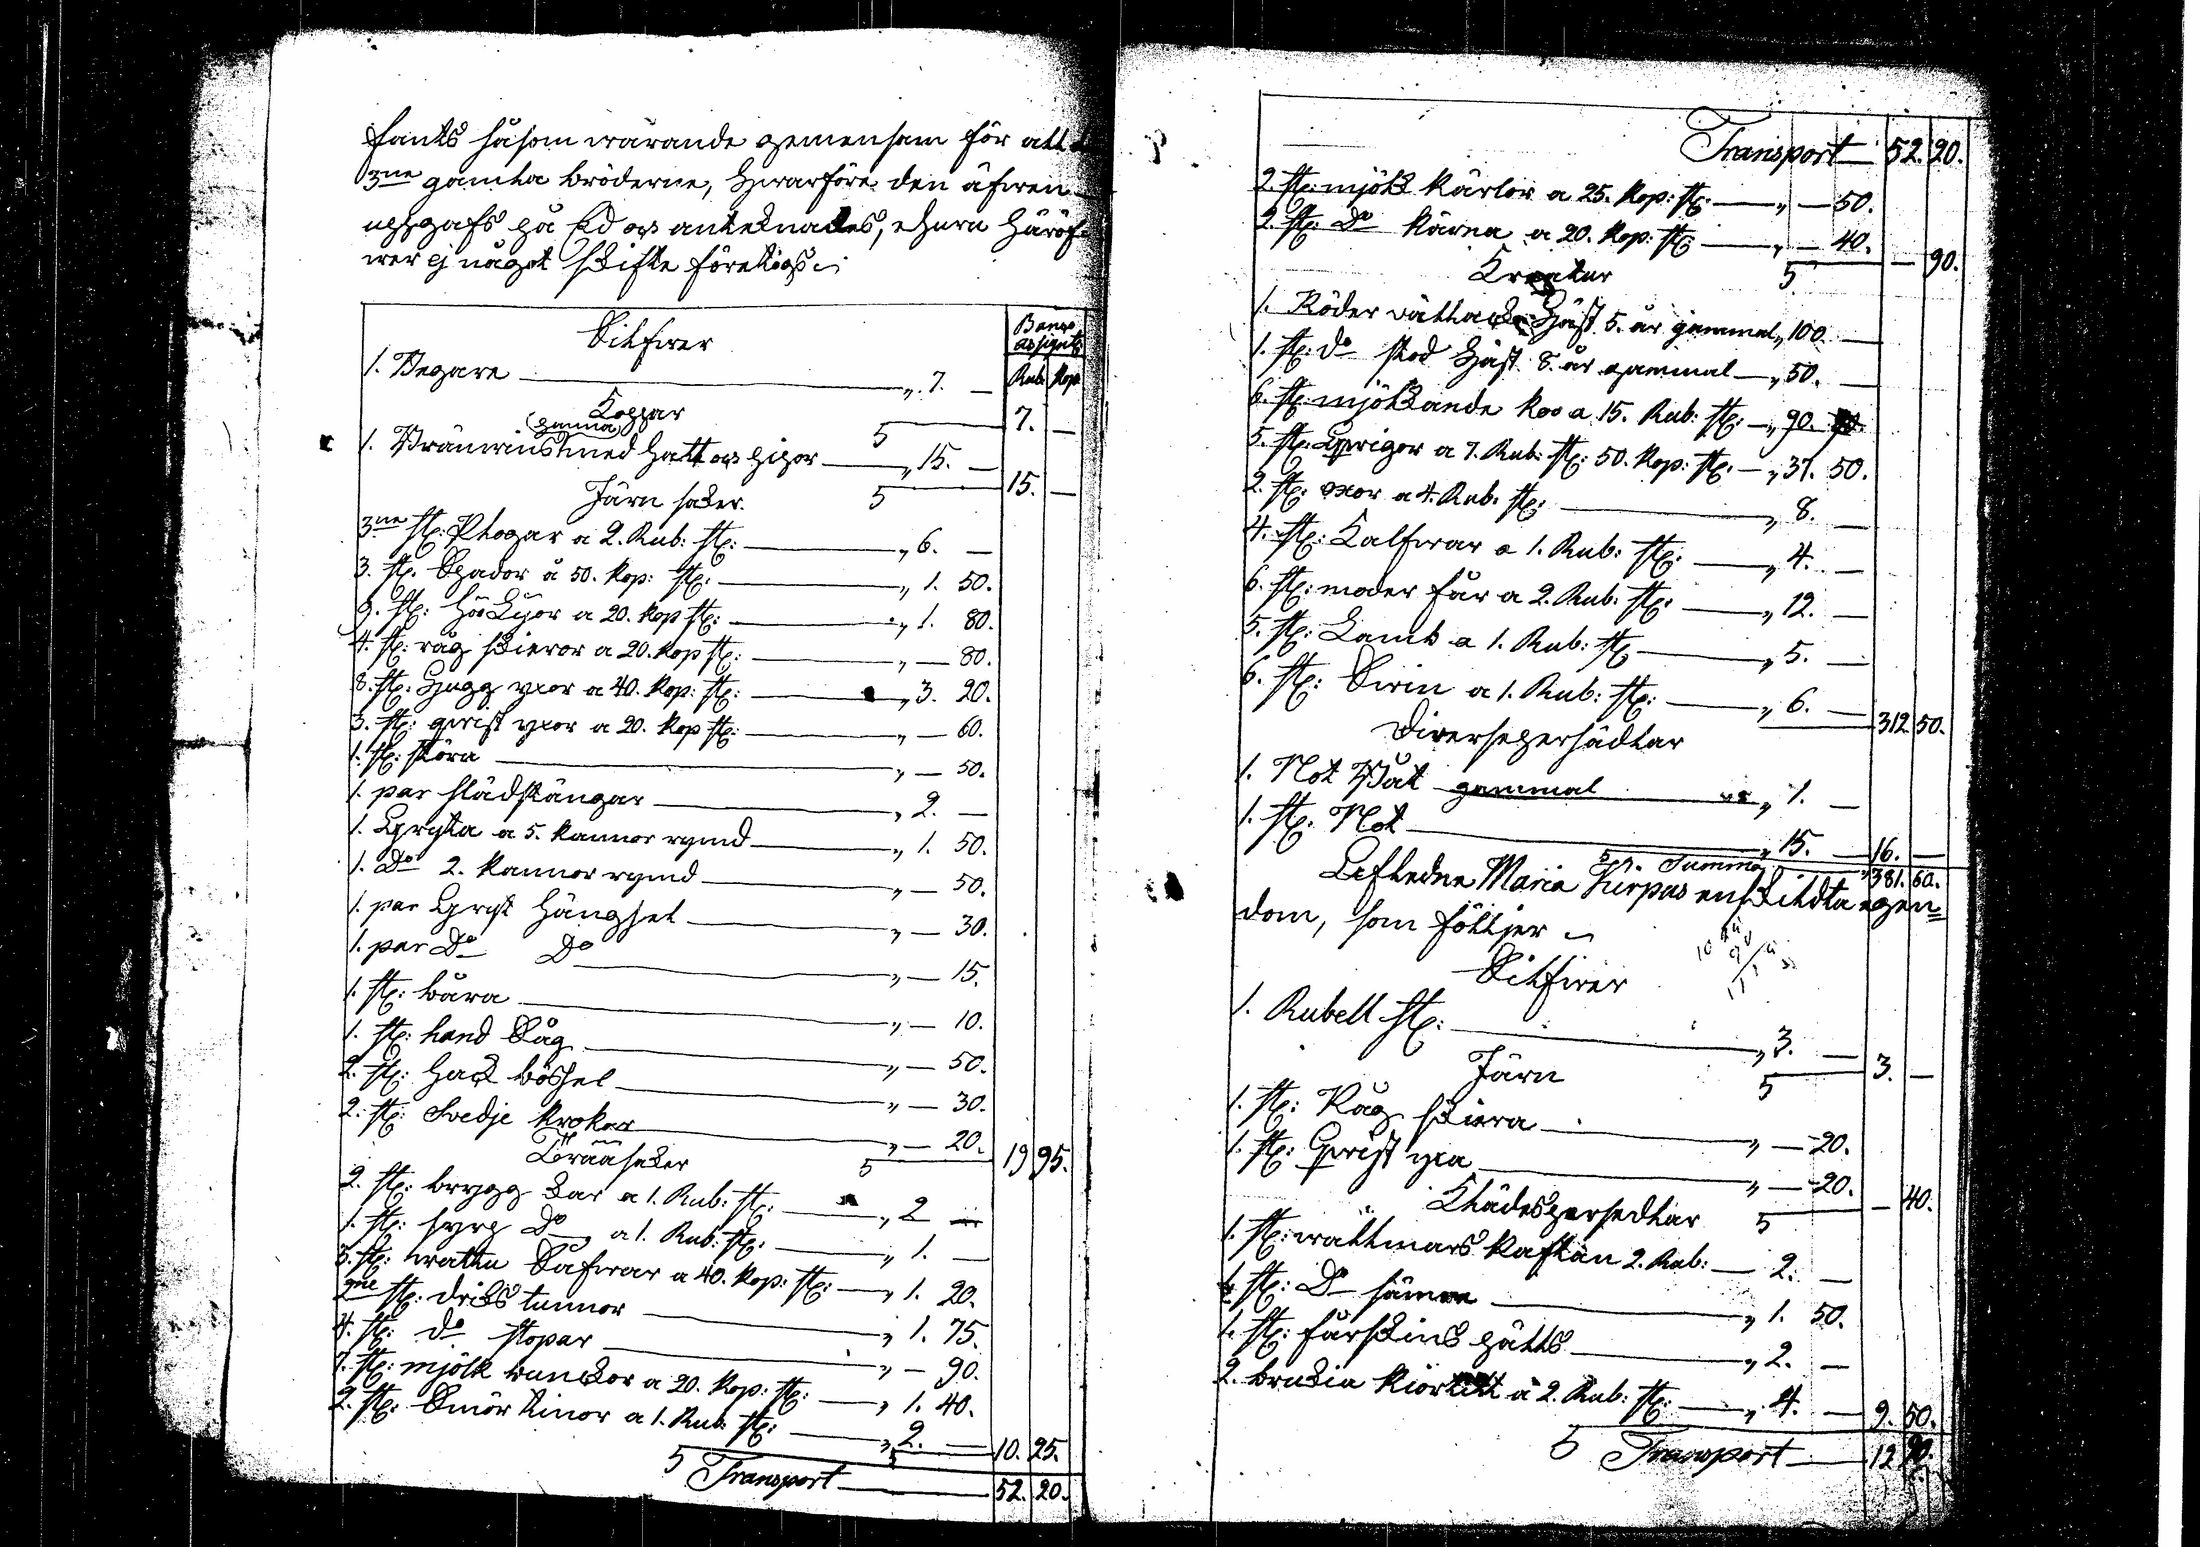 fants såsom warande gemensam för att
3ne gamla bröderne, hwarföre den äfwen
uppgafs på Ed och antecknades, ehuru häröf-
wer ej något skifte företogs.
Silfwer
Banco assignat:
1. Begare — " 7. —
Rub. Kop.
Koppar
7. —
1. Bränwins panna med hatt och pipor — " 15. —
Järn saker.
15. —
3ne st: Plogar a 2. Rub: st: — " 6. —
3. st. Spador á 50. Kop: st: — " 1. 50.
9. st: Hö Lijor a 20. Kop st: — " 1. 80.
4. st: råg skieror a 20. Kop st: — " — 80.
8. st. Hugg yxor a 40. Kop: st: — " 3. 20.
3. st: qwist yxor a 20. Kop st: — " — 60.
1. st: skära — " — 50.
1. par slädstängar — " 2. —
1. Gryta a 5. Kannor rymd — " 1. 50.
1. Do 2. Kannor rymd — " — 50.
1. par Gryt hängsel — " — 30.
1. par Do Do — " — 15.
1. st: båra — " — 10.
1. st: hand Såg — " — 50.
2. st: Hack bössel — " — 30.
2. st: Svedje krokar — " — 20.
19 95.
Trää saker
2. st: brygg Kar a 1. Rub: st: — " 2 —
1. st: syre Do a 1. Rub: st: — " 1. —
3. st: wattu Såfwar a 40. Kop: st: — " 1. 20.
2ne st: dricks tunnor — " 1. 75.
4. st: do stopar — " — 90.
7. st: mjölk bunckor a 20. Kop: st: — " 1. 40.
2. st: Smör Kinor a 1. Rub: st: — " 2. —
10. 25.
S Transport — 52. 20.
Transport — 52. 20.
2. st: mjölk kärlor a 25. Kop: st: — " — 50.
2. st: Do Kärna a 20. Kop: st: — " — 40.
— 90.
Kreatur
1. Röder vallack Häst 5. år gammal " 100. —
1. st: do stod Häst 8. år gammal — " 50. —
6. st: mjölkande Koo a 15. Rub: st: — " 90.
5. st: Qwigor a 7. Rub: st: 50. Kop: st. — " 37. 50.
2. st: oxor a 4. Rub: st: — " 8. —
4. st: Kalfwar a 1. Rub: st: — " 4. —
6. st: moder får a 2. Rub: st: — " 12. —
5. st: Lamb a 1. Rub: st — " 5. —
6. st: Swin a 1. Rub: st: — " 6. —
312 50.
Diversepersädlar
1. Not Båt gammal — " 1. —
1. st: Not — " 15. —
16. —
S:r Summa 381. 60.
Afledne Maria Kurpus enskildta egen=
dom, som följer
Silfwer
1. Rubell st: — " 3. —
3. —
Järn
1. st: Råg skiera — " — 20.
1. st: Qwist yxa — " — 20.
— 40.
Klädespersedlar
1. st: wallmars Kaftan 2. Rub: — 2. —
1. st: Do sämre — " 1. 50.
1. st: fårskins päls — " 2. —
2. brukia Kiortell á 2. Rub: st: — " 4. —
9. 50.
S Transport — 12 90.